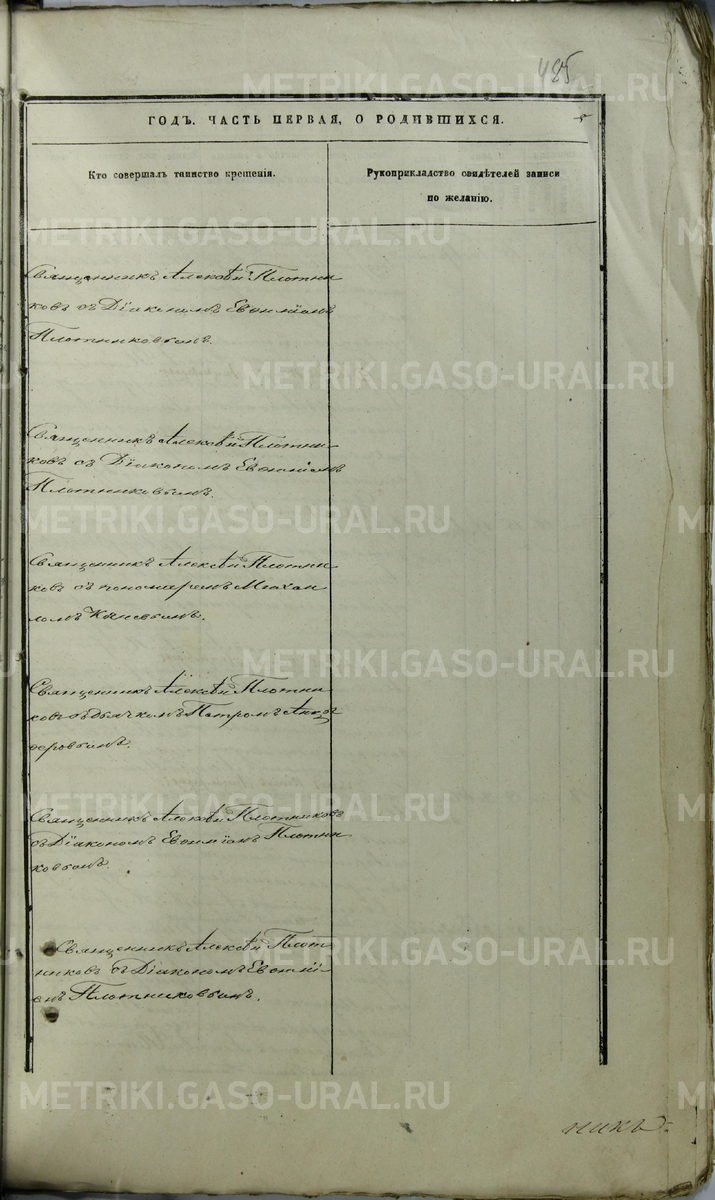 485
ГОДЪ. ЧАСТЬ ПЕРВАЯ, О РОДИВШИХСЯ.
Кто совершалъ таинство крещенія.
Рукоприкладство свидѣтелей записи
по желанію.
Священникъ Алексѣй Плотни
ковъ съ Діакономъ Евѳиміемъ
Плотниковымъ.
Священникъ Алексѣй Плотни-
ковъ съ Діакономъ Евѳиміемъ
Плотниковымъ.
Священникъ Алексѣй Плотни-
ковъ съ пономаремъ Михаи
ломъ
Священникъ Алексѣй Плотни-
ковъ съ дьячкомъ Петромъ
Священникъ Алексѣй Плотниковъ
съ Діакономъ Евѳиміемъ Плотни
ковымъ.
Священникъ Алексѣй Плот-
никовъ съ Діакономъ Евѳимі-
емъ Плотниковымъ.
никъ
METRIKI.GASO-URAL.RU